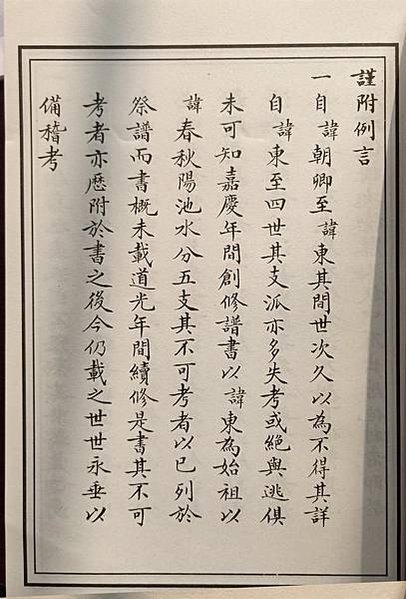 謹附例言
一自諱朝卿至諱東其間世次久以為不得其詳
自諱東至四世其支派亦多失考或絕與逃俱
未可知嘉慶年間創修譜書以諱東為始祖以
諱春秋陽池水分五支其不可考者以已列於
祭譜而書概未載道光年間續修是書其不可
考者亦歷附於書之後今仍載之世世永垂以
備稽考